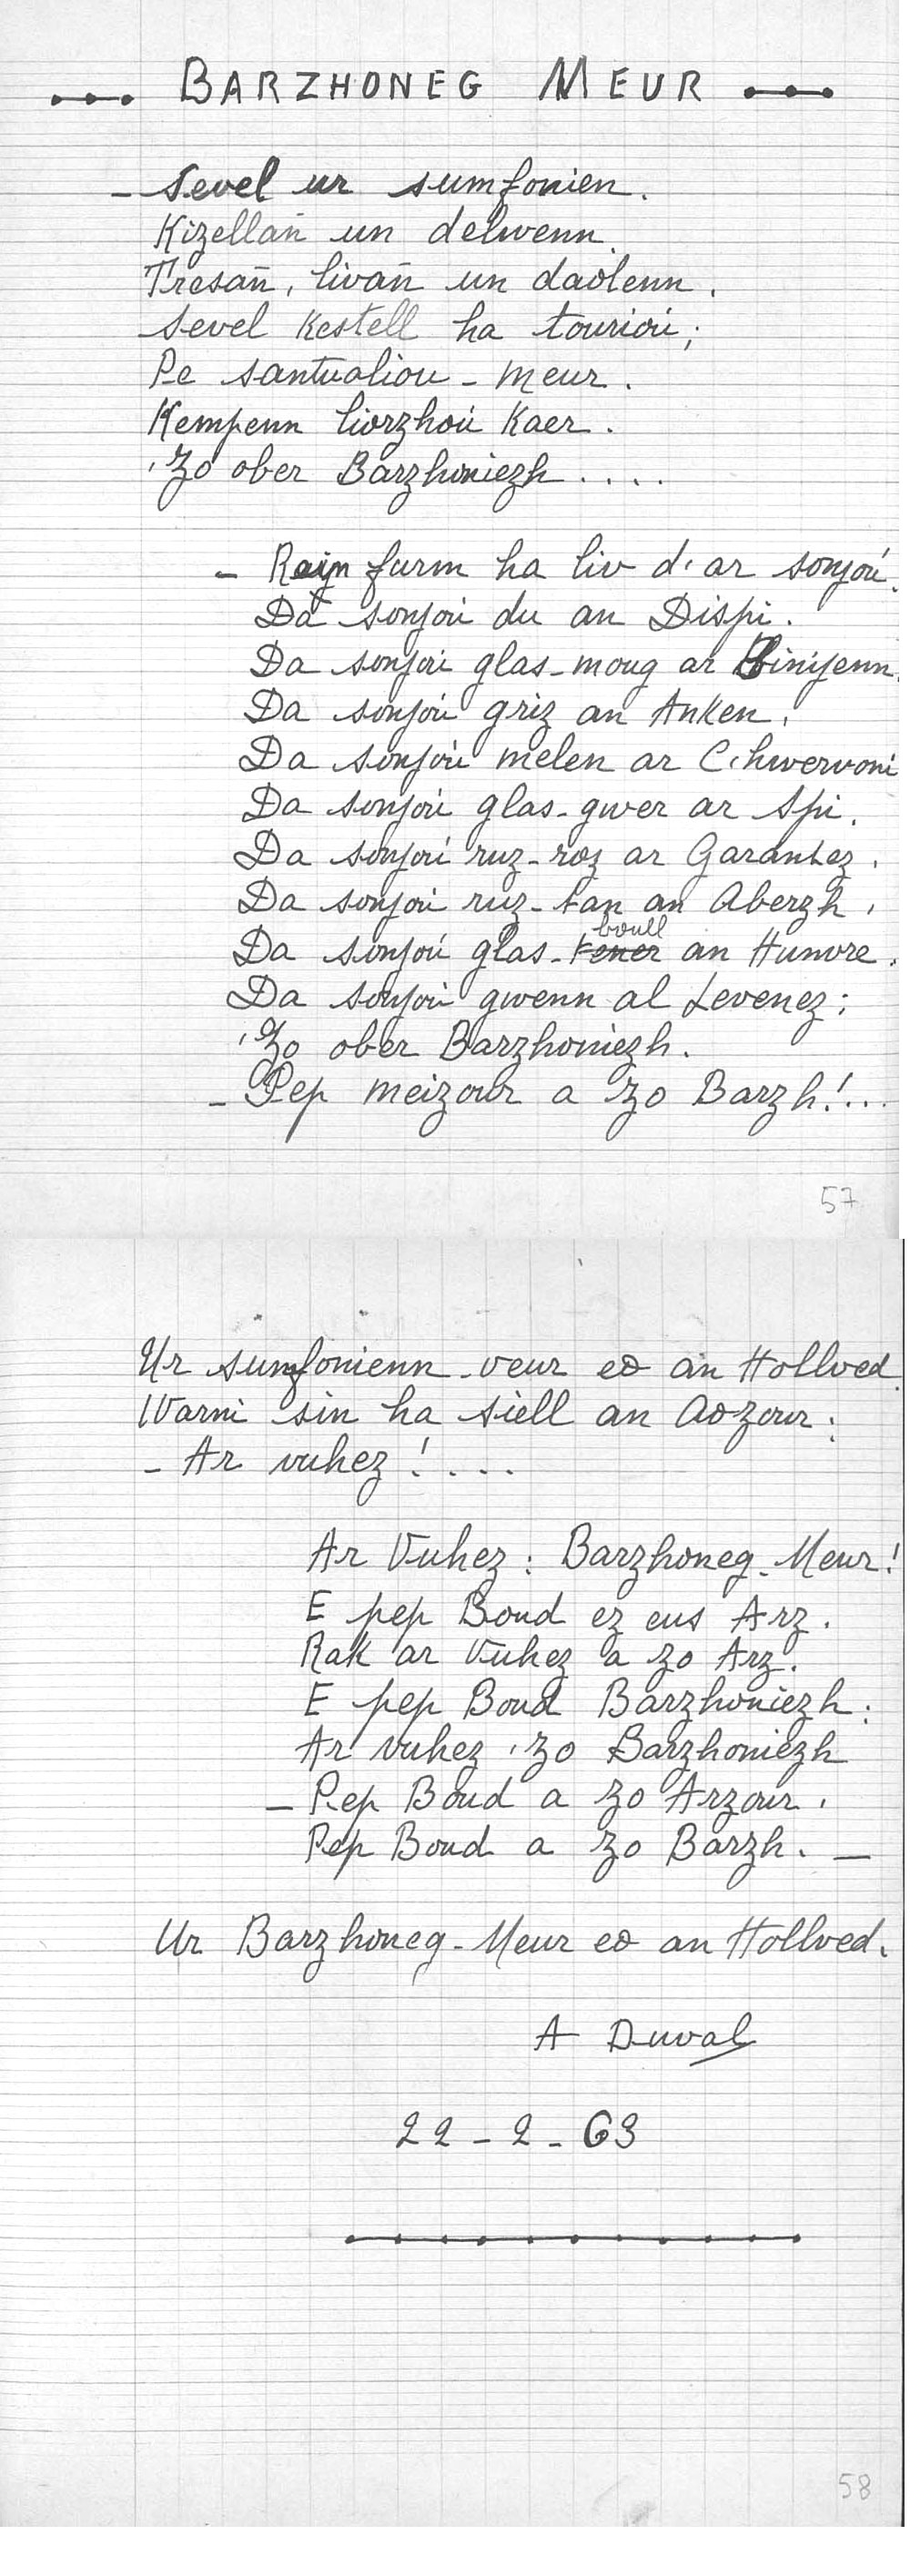 ... BARZHONEG MEUR ...
- Sevel ur sumfonien.
Kizellañ un delwenn.
Tresañ, livañ un daolenn.
Sevel Kestell ha tourioù;
Pe santualiou-meur.
Kempenn liorzhoù Kaer.
'Zo ober Barzhoniezh....
- Reiñ furm ha liv d'ar sonjoù.
Da sonjoù du an Dispi.
Da sonjoù glas-moug ar Binijenn.
Da sonjoù griz an Anken.
Da sonjoù melen ar C'hwervoni
Da sonjoù glas-gwer ar Spi.
Da sonjoù ruz-roz ar Garantez.
Da sonjoù ruz-tan an Aberzh.
boull
Da sonjoù glas-tener an Hunvre.
Da sonjoù gwenn al Levenez;
'Zo ober Barzhoniezh.
- Pep meizour a zo Barzh!...
57
Ur sumfonienn-veur eo an Hollved.
Warni sin ha siell an Aozour:
- Ar vuhez!....
Ar Vuhez: Barzhoneg-Meur!
E pep Boud ez eus Arz.
Rak ar Vuhez a zo Arz.
E pep Boud Barzhoniezh:
Ar vuhez 'zo Barzhoniezh
- Pep Boud a zo Arzour.
Pep Boud a zo Barzh. -
Ur Barzhoneg-Meur eo an Hollved.
A Duval
22-2-63
58